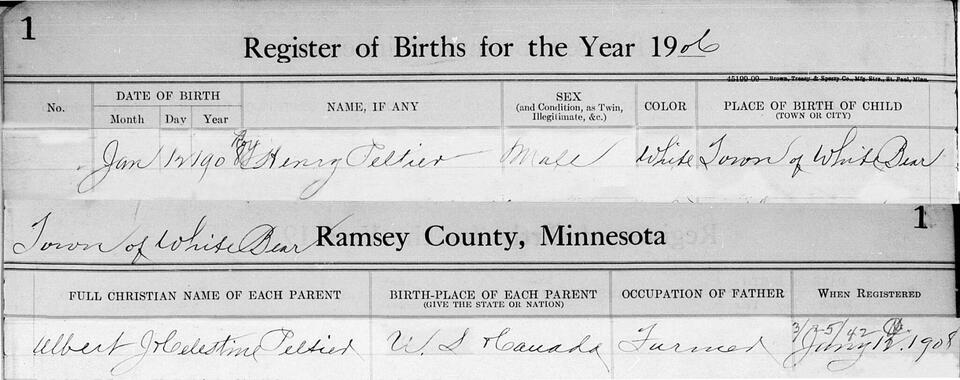 1
Register of Births for the Year 1906
45199-09—Brown, Treacy & Sperry Co., Mfg. Strs., St. Paul, Minn.
No. DATE OF BIRTH NAME, IF ANY SEX COLOR PLACE OF BIRTH OF CHILD
Month Day Year (and Condition, as Twin, Illegitimate, &c.) (TOWN OR CITY)
Roy
Jan 12 1908 Henry Peltier Male White Town of White Bear
Town of White Bear Ramsey County, Minnesota 1
FULL CHRISTIAN NAME OF EACH PARENT BIRTH-PLACE OF EACH PARENT OCCUPATION OF FATHER WHEN REGISTERED
(GIVE THE STATE OR NATION)
3/25/42
Albert J & Celestine Peltier U. S & Canada Farmer Jany 12. 1908